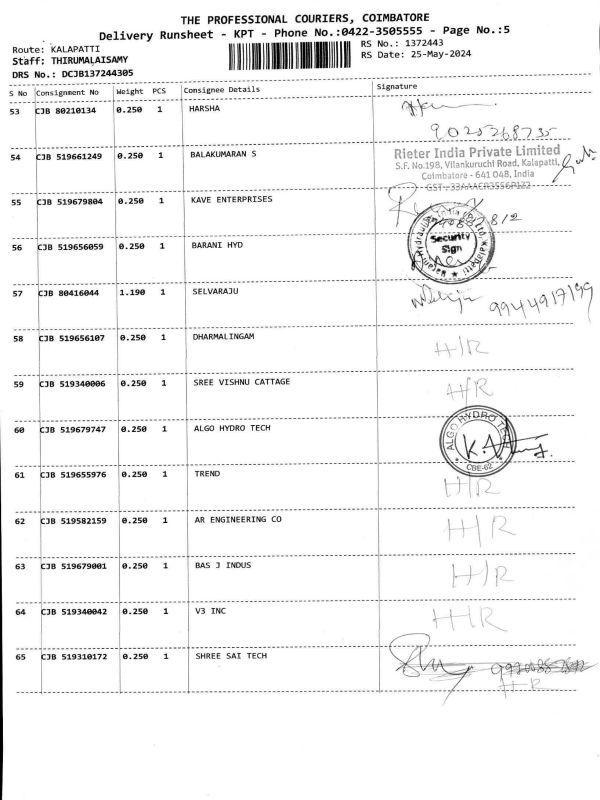 THE PROFESSIONAL COURIERS, COIMBATORE
Delivery Runsheet - KPT - Phone No.:0422-3505555 - Page No.:5
Route: KALAPATTI
RS No.: 1372443
Staff: THIRUMALAISAMY
RS Date: 25-May-2024
DRS No.: DCJB137244305
S No Consignment No Weight PCS Consignee Details Signature
53 CJB 80210134 0.250 1 HARSHA
54 CJB 519661249 0.250 1 BALAKUMARAN S
Rieter India Private Limited
S.F. No.198, Vilankuruchi Road, Kalapatti,
Coimbatore - 641 048, India
55 CJB 519679804 0.250 1 KAVE ENTERPRISES
56 CJB 519656059 0.250 1 BARANI HYD
Security
Sign
57 CJB 80416044 1.190 1 SELVARAJU
9944917199
58 CJB 519656107 0.250 1 DHARMALINGAM H/R
59 CJB 519340006 0.250 1 SREE VISHNU CATTAGE H/R
60 CJB 519679747 0.250 1 ALGO HYDRO TECH
ALGO HYDRO TECH
CBE-62
61 CJB 519655976 0.250 1 TREND H/R
62 CJB 519582159 0.250 1 AR ENGINEERING CO H/R
63 CJB 519679001 0.250 1 BAS J INDUS H/R
64 CJB 519340042 0.250 1 V3 INC H/R
65 CJB 519310172 0.250 1 SHREE SAI TECH
H-R